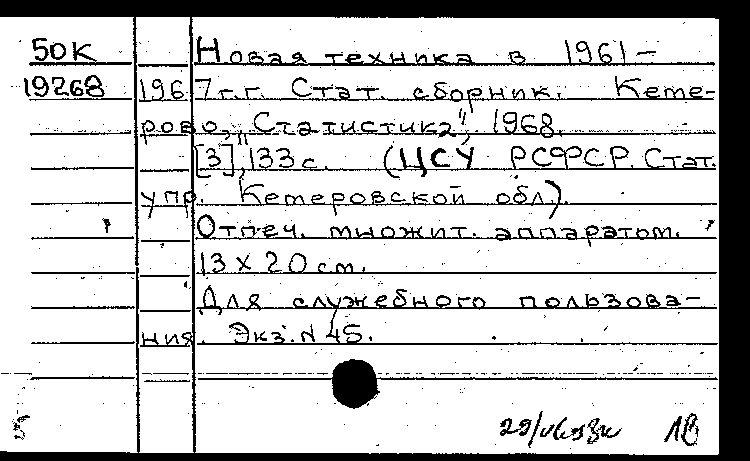 50К Новая техника в 1961–
19268 1967 г.г. Стат. сборник. Кеме-
рово, „Статистика", 1968.
[3], 133 с. (ЦСУ РСФСР. Стат.
упр. Кемеровской обл).
Отпеч. множит. аппаратом.
13 х 20 см.
Для служебного пользова-
ния. Экз. N 45.